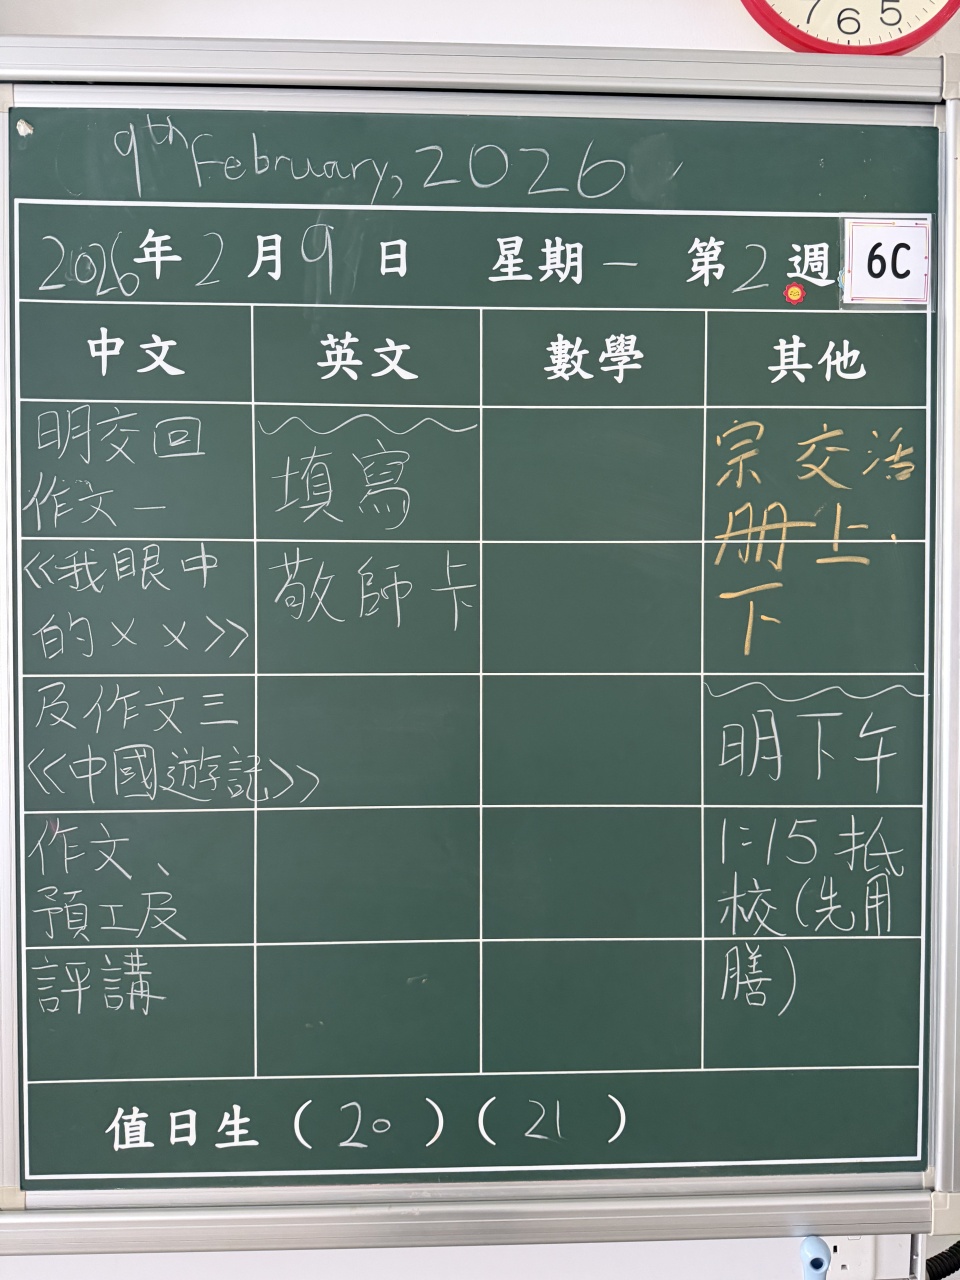 7 6 5
9th February, 2026
2026年2月9日 星期一 第2週 6C
中文 英文 數學 其他
明交回
作文一
《我眼中
的××》
及作文三
《中國遊記》
作文、
預工及
評講
填寫
敬師卡
宗交活
冊上、
下
明下午
1:15抵
校(先用
膳)
值日生(20)(21)